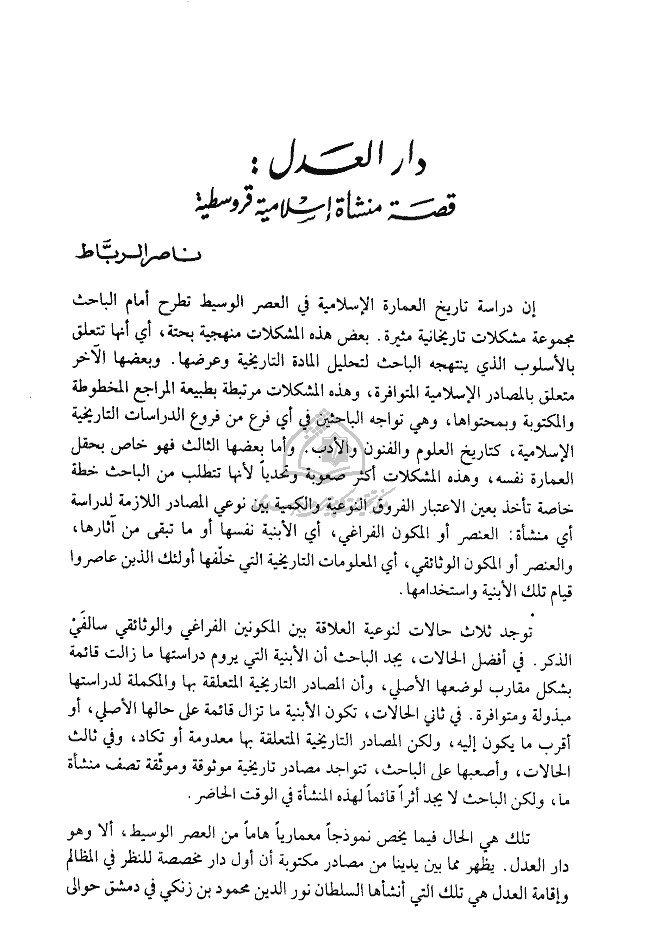 دار العدل :
قصة منشأة إسلامية قروسطية
ناصر الربَّاط
إن دراسة تاريخ العمارة الإسلامية في العصر الوسيط تطرح أمام الباحث
مجموعة مشكلات تاريخانية مثيرة. بعض هذه المشكلات منهجية بحتة، أي أنها تتعلق
بالأسلوب الذي ينتهجه الباحث لتحليل المادة التاريخية وعرضها. وبعضها الآخر
متعلق بالمصادر الإسلامية المتوافرة، وهذه المشكلات مرتبطة بطبيعة المراجع المخطوطة
والمكتوبة وبمحتواها، وهي تواجه الباحثين في أي فرع من فروع الدراسات التاريخية
الإسلامية، كتاريخ العلوم والفنون والأدب. وأما بعضها الثالث فهو خاص بحقل
العمارة نفسه، وهذه المشكلات أكثر صعوبة وتحدياً لأنها تتطلب من الباحث خطة
خاصة تأخذ بعين الاعتبار الفروق النوعية والكمية بين نوعي المصادر اللازمة لدراسة
أي منشأة: العنصر أو المكون الفراغي، أي الأبنية نفسها أو ما تبقى من آثارها،
والعنصر أو المكون الوثائقي، أي المعلومات التاريخية التي خلّفها أولئك الذين عاصروا
قيام تلك الأبنية واستخدامها.
توجد ثلاث حالات لنوعية العلاقة بين المكونين الفراغي والوثائقي سالفَيْ
الذكر. في أفضل الحالات، يجد الباحث أن الأبنية التي يروم دراستها ما زالت قائمة
بشكل مقارب لوضعها الأصلي، وأن المصادر التاريخية المتعلقة بها والمكملة لدراستها
مبذولة ومتوافرة. في ثاني الحالات، تكون الأبنية ما تزال قائمة على حالها الأصلي، أو
أقرب ما يكون إليه، ولكن المصادر التاريخية المتعلقة بها معدومة أو تكاد، وفي ثالث
الحالات، وأصعبها على الباحث، تتواجد مصادر تاريخية موثوقة وموثّقة تصف منشأة
ما، ولكن الباحث لا يجد أثراً قائماً لهذه المنشأة في الوقت الحاضر.
تلك هي الحال فيما يخص نموذجاً معمارياً هاماً من العصر الوسيط، ألا وهو
دار العدل. يظهر مما بين يدينا من مصادر مكتوبة أن أول دار مخصصة للنظر في المظالم
وإقامة العدل هي تلك التي أنشأها السلطان نور الدين محمود بن زنكي في دمشق حوالى